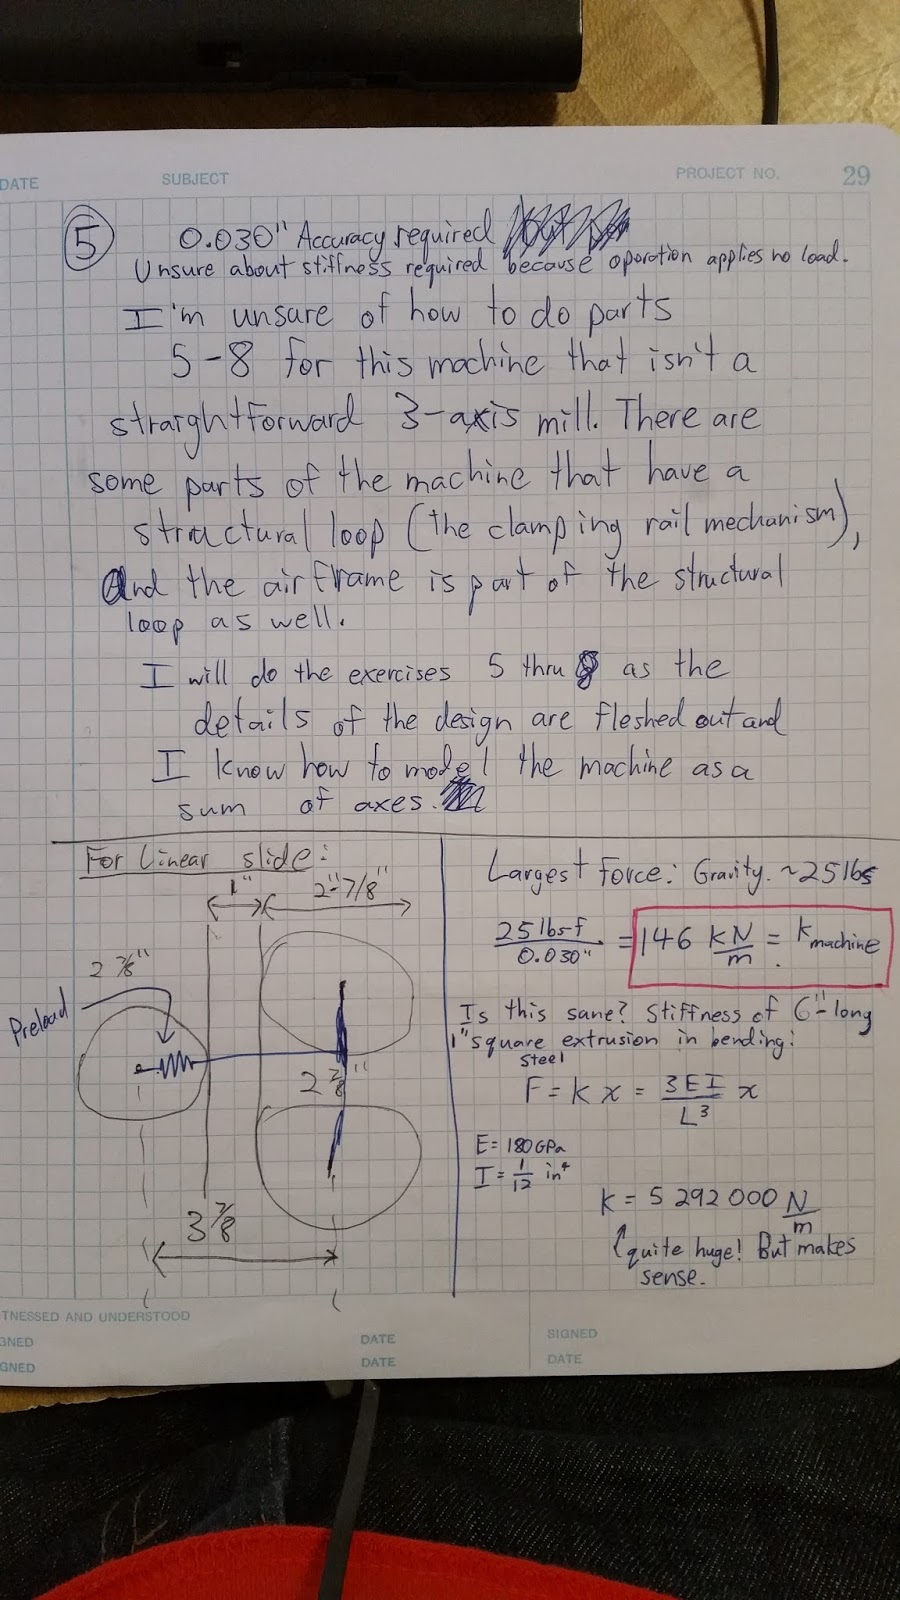 DATE SUBJECT PROJECT NO. 29
5 0.030" Accuracy required
Unsure about stiffness required because operation applies no load.
I'm unsure of how to do parts
5-8 for this machine that isn't a
straightforward 3-axis mill. There are
some parts of the machine that have a
structural loop (the clamping rail mechanism),
And the airframe is part of the structural
loop as well.
I will do the exercises 5 thru 8 as the
details of the design are fleshed out and
I know how to model the machine as a
sum of axes.
For linear slide:
1" 2"-7/8"
2 7/8"
Preload
2 7/8"
3 7/8
Largest force: Gravity. ~25 lbs
25 lbs-f / 0.030" = 146 kN/m = k machine
Is this sane? Stiffness of 6"-long
1" square extrusion in bending:
steel
F = k x = 3EI/L³ x
E = 180 GPa
I = 1/12 in⁴
k = 5 292 000 N/m
quite huge! But makes
sense.
TNESSED AND UNDERSTOOD
GNED DATE SIGNED
GNED DATE DATE